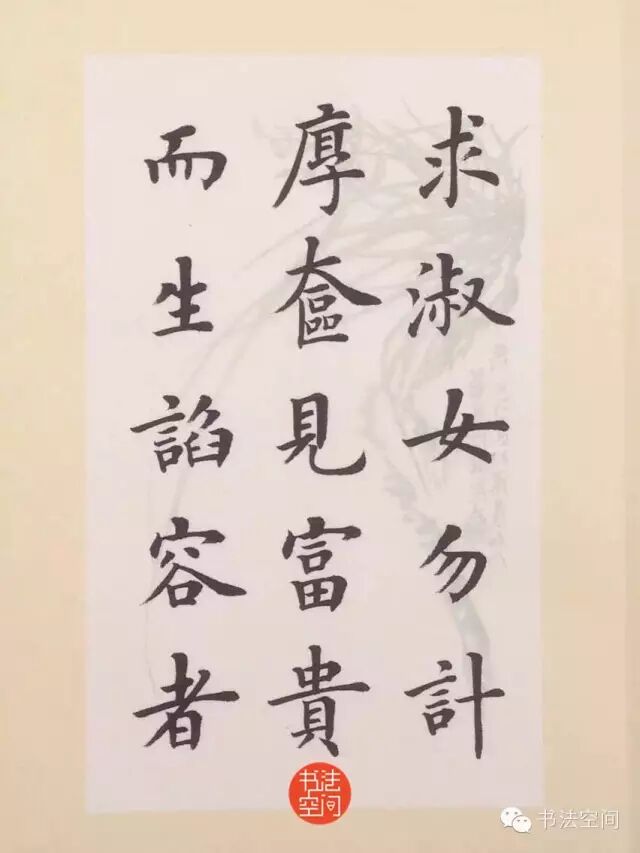 求淑女勿計
厚奩見富貴
而生諂容者
书法空间
书法空间